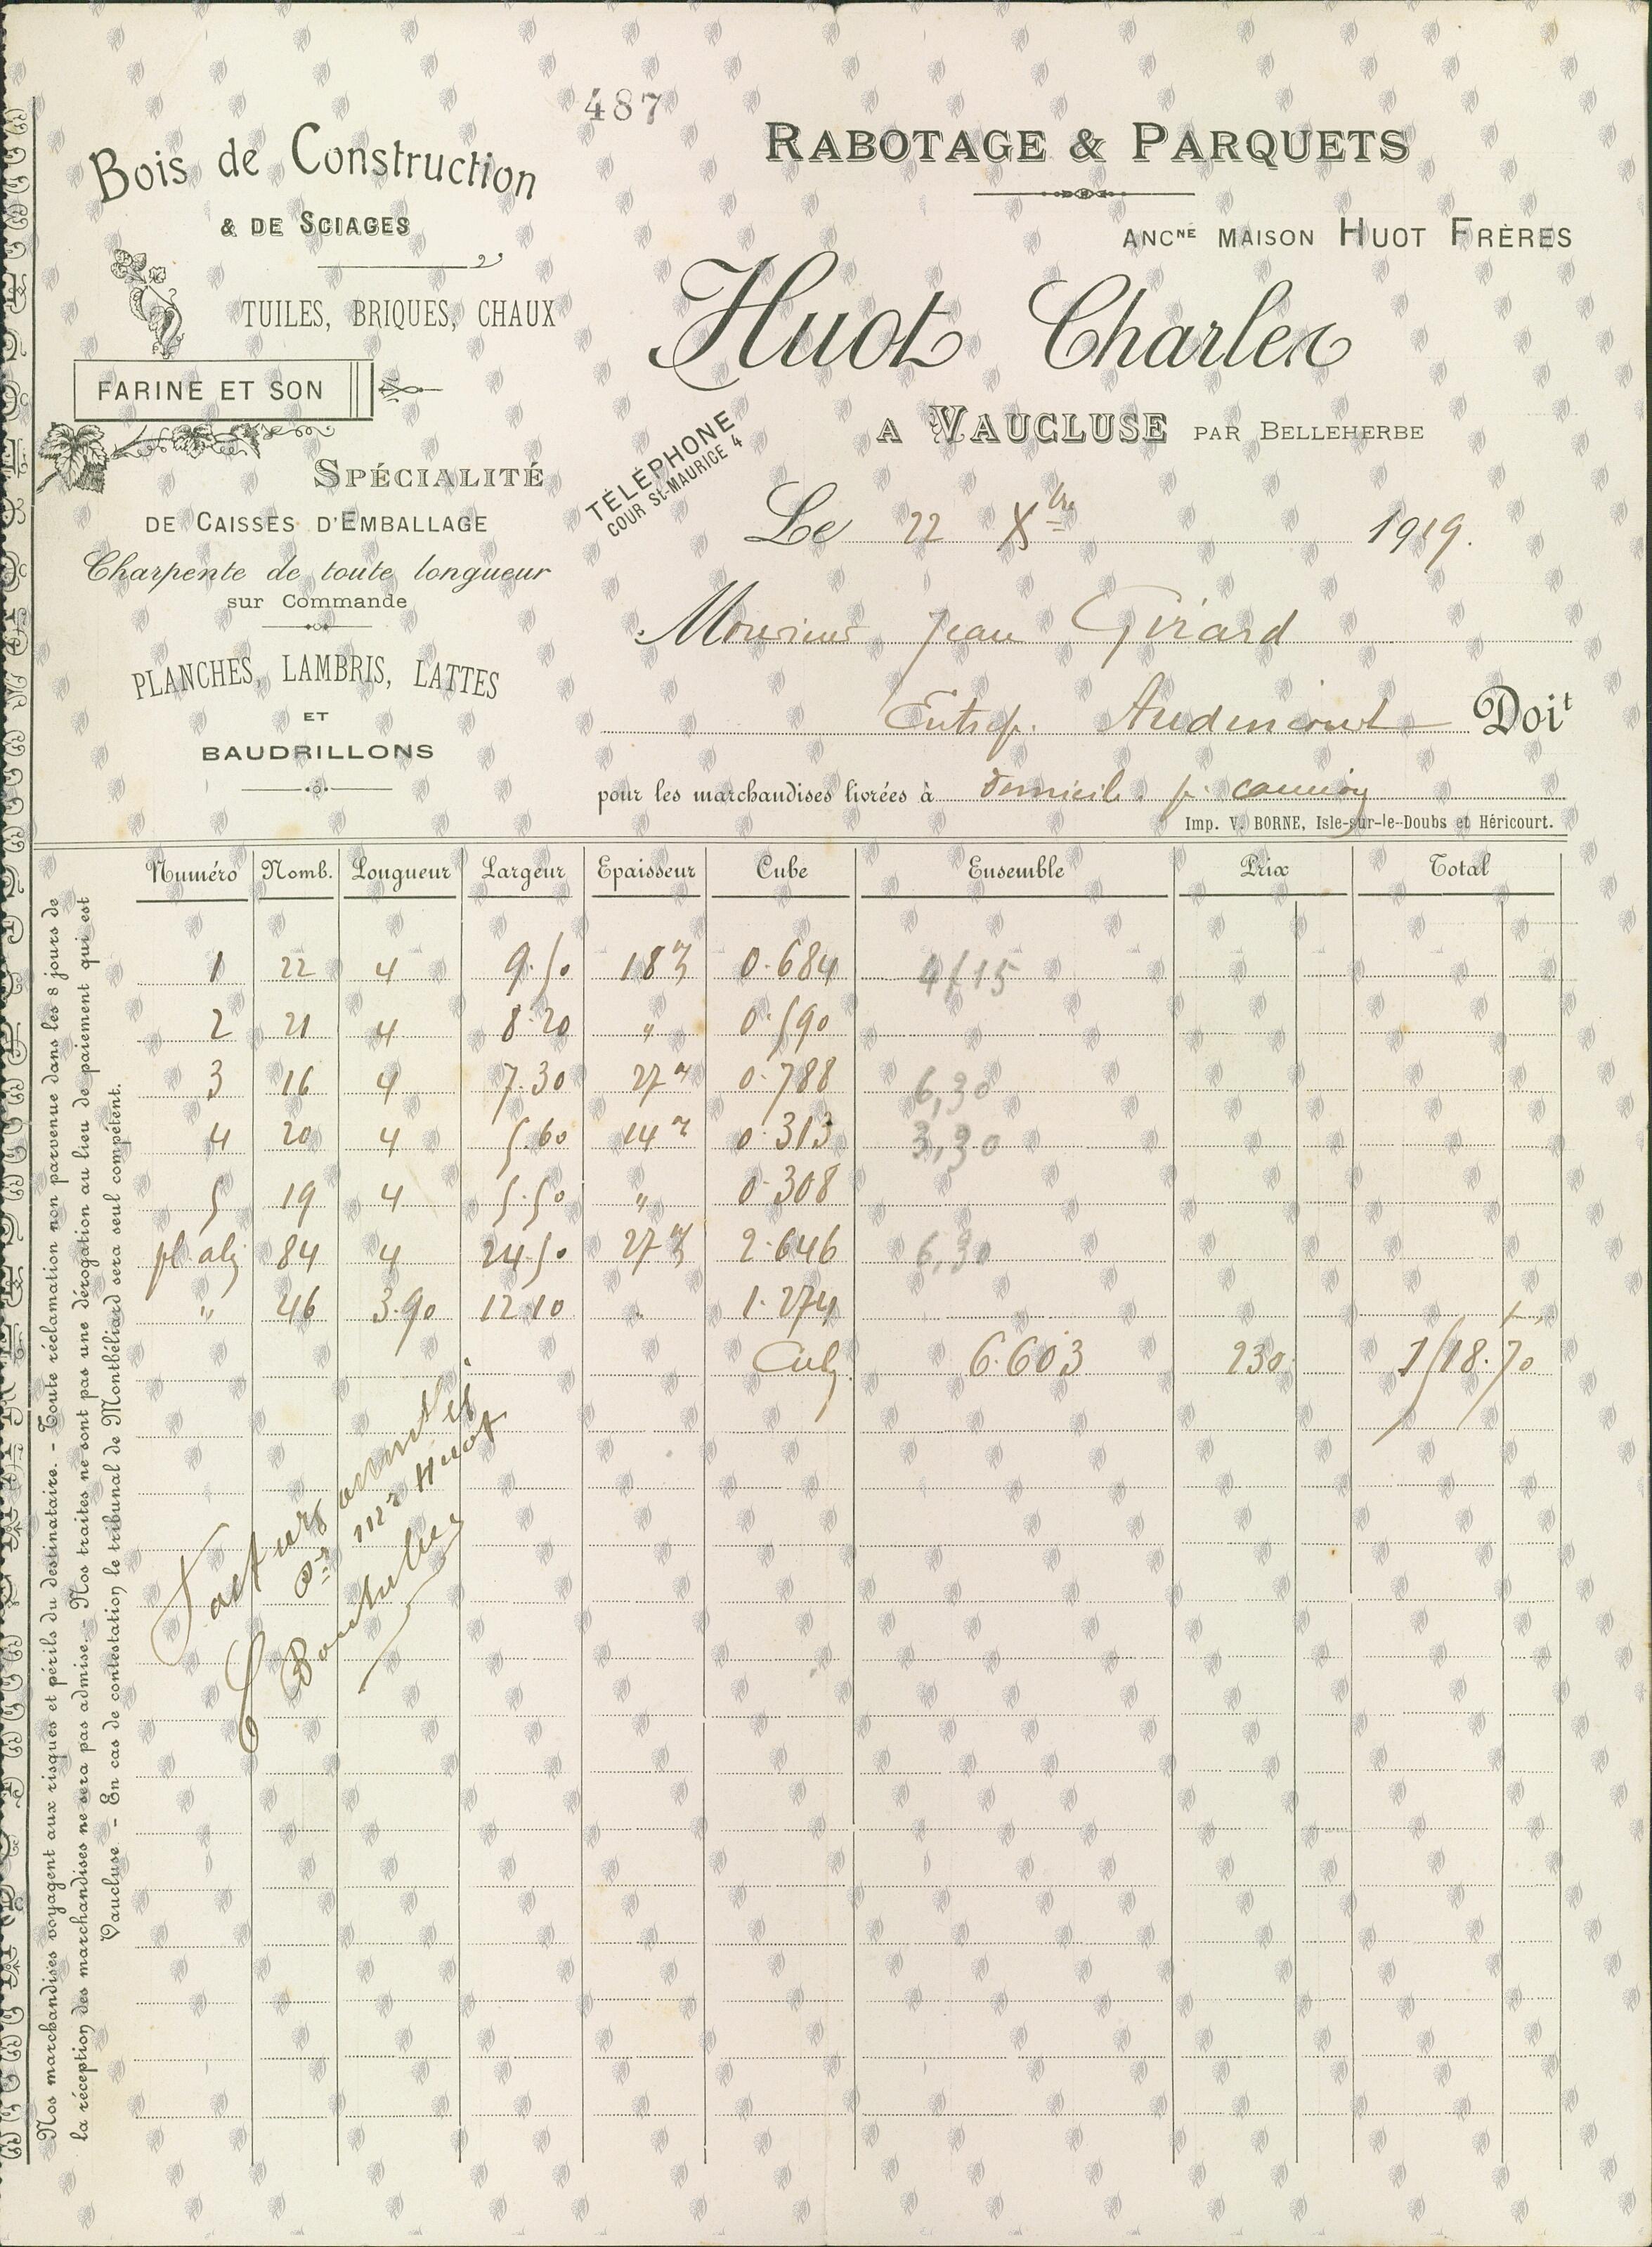 487
Bois de Construction
& DE SCIAGES
TUILES, BRIQUES, CHAUX
FARINE ET SON
SPÉCIALITÉ
DE CAISSES D'EMBALLAGE
Charpente de toute longueur
sur Commande
PLANCHES, LAMBRIS, LATTES
ET
BAUDRILLONS
RABOTAGE & PARQUETS
ANCNE MAISON HUOT FRÈRES
Huot Charles
A VAUCLUSE PAR BELLEHERBE
TÉLÉPHONE
COUR St-MAURICE 4
Le 22 Xbre 1919.
Monsieur Jean Girard
Entrep. Audincourt Doit
pour les marchandises livrées à domicile p. camion
Imp. V. BORNE, Isle-sur-le-Doubs et Héricourt.
Numéro Nomb. Longueur Largeur Epaisseur Cube Ensemble Prix Total
1 22 4 9.50 18 0.684 4/15
2 21 4 8.20 " 0.590
3 16 4 7.30 27 0.788 6,30
4 20 4 5.60 14 0.313 3,30
5 19 4 5.50 " 0.308
84 4 24.50 27 2.646 6,30
" 46 3.90 12.10 1.274
Cub 6.603 230 1518.70
Facture
Huot
Nos marchandises voyagent aux risques et périls du destinataire. - Toute réclamation non parvenue dans les 8 jours de
la réception des marchandises ne sera pas admise. - Nos traites ne sont pas une dérogation au lieu de paiement qui est
Vaucluse. - En cas de contestation le tribunal de Montbéliard sera seul compétent.